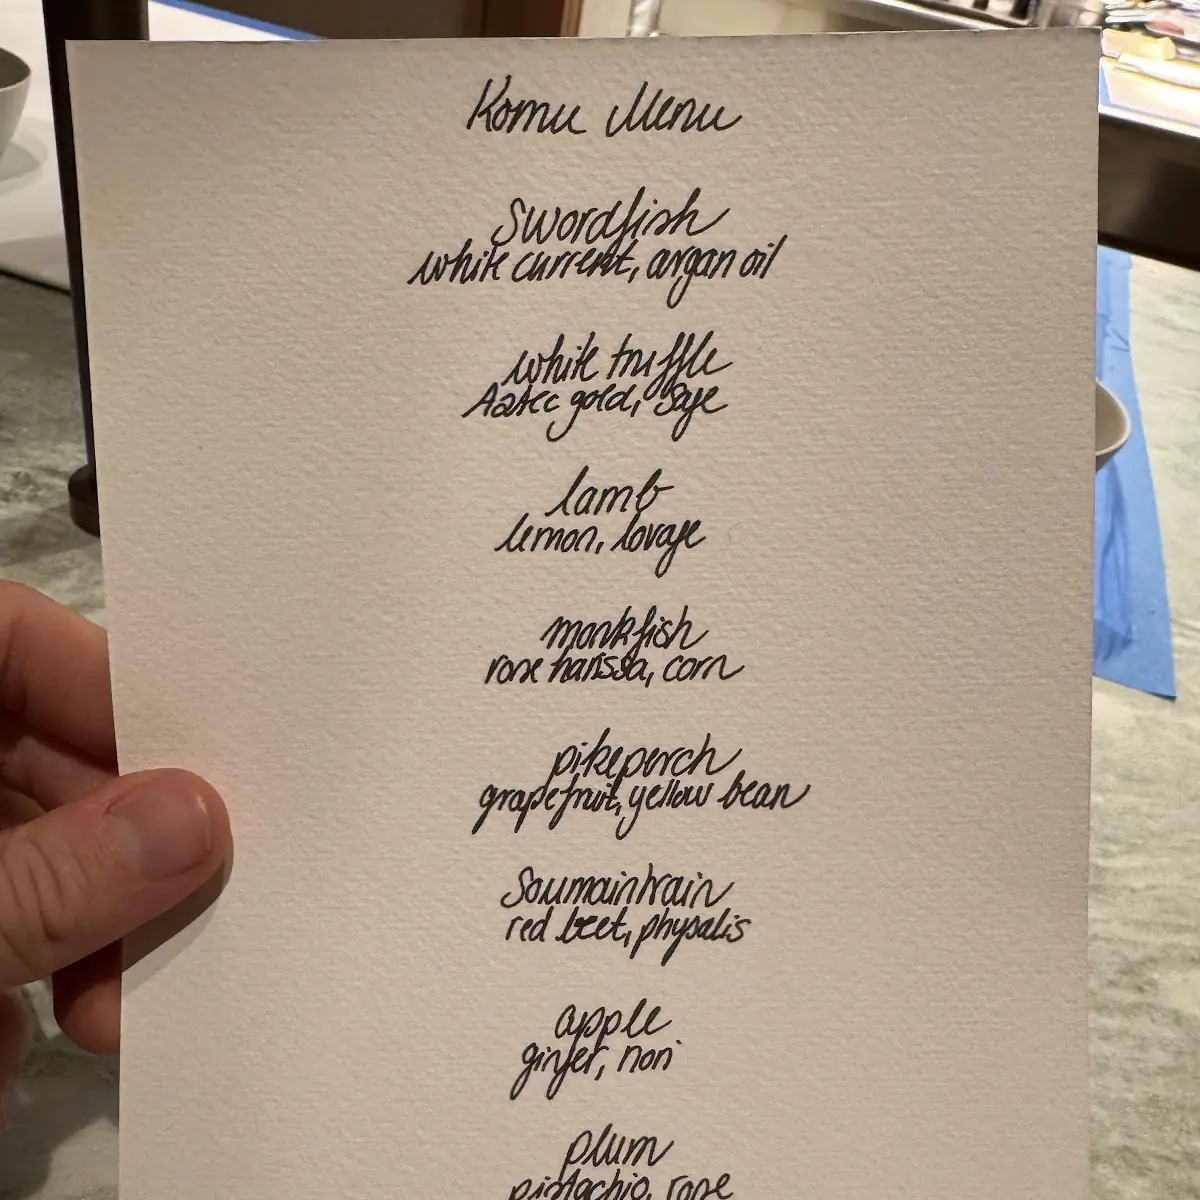 Komu Menu
Swordfish
white current, argan oil
white truffle
Aztec gold, Saye
lamb
lemon, lovage
monkfish
rose harissa, corn
pikeperch
grapefruit, yellow bean
Soumaintrain
red beet, physalis
apple
ginger, nori
plum
pistachio, rose